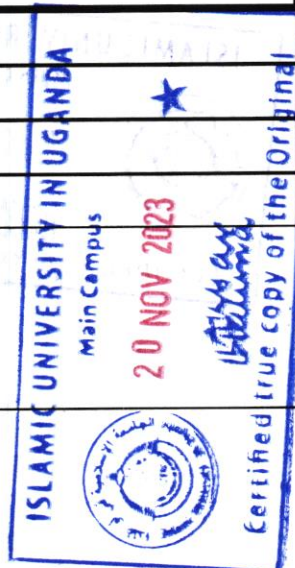 ISLAMIC UNIVERSITY IN UGANDA
Main Campus
20 NOV 2023
Certified true copy of the Original